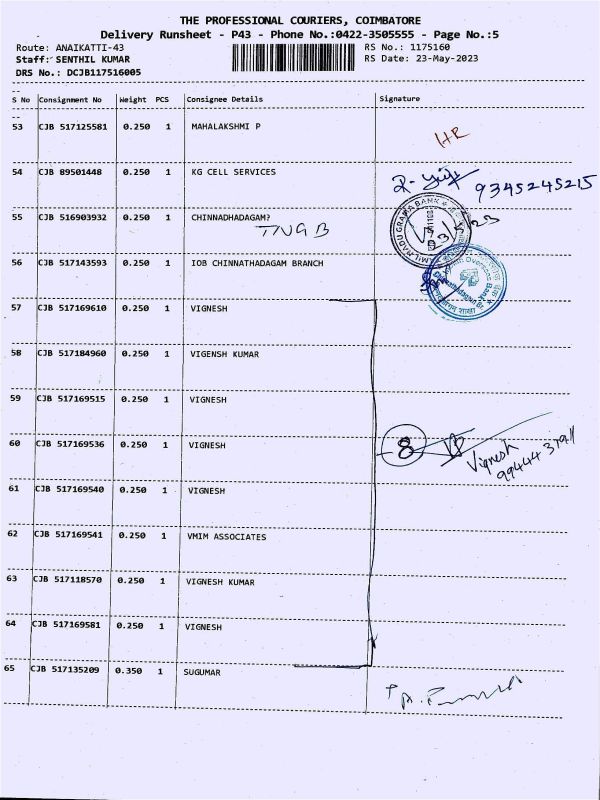 THE PROFESSIONAL COURIERS, COIMBATORE
Delivery Runsheet - P43 - Phone No.:0422-3505555 - Page No.:5
Route: ANAIKATTI-43 RS No.: 1175160
Staff: SENTHIL KUMAR RS Date: 23-May-2023
DRS No.: DCJB117516005
S No Consignment No Weight PCS Consignee Details Signature
53 CJB 517125581 0.250 1 MAHALAKSHMI P
HR
54 CJB 89501448 0.250 1 KG CELL SERVICES
9345245215
55 CJB 516903932 0.250 1 CHINNADHADAGAM?
TNGB
TAMIL NADU GRAMA BANK
56 CJB 517143593 0.250 1 IOB CHINNATHADAGAM BRANCH
57 CJB 517169610 0.250 1 VIGNESH
58 CJB 517184960 0.250 1 VIGENSH KUMAR
59 CJB 517169515 0.250 1 VIGNESH
60 CJB 517169536 0.250 1 VIGNESH
8
Vignesh
61 CJB 517169540 0.250 1 VIGNESH
62 CJB 517169541 0.250 1 VMIM ASSOCIATES
63 CJB 517118570 0.250 1 VIGNESH KUMAR
64 CJB 517169581 0.250 1 VIGNESH
65 CJB 517135209 0.350 1 SUGUMAR